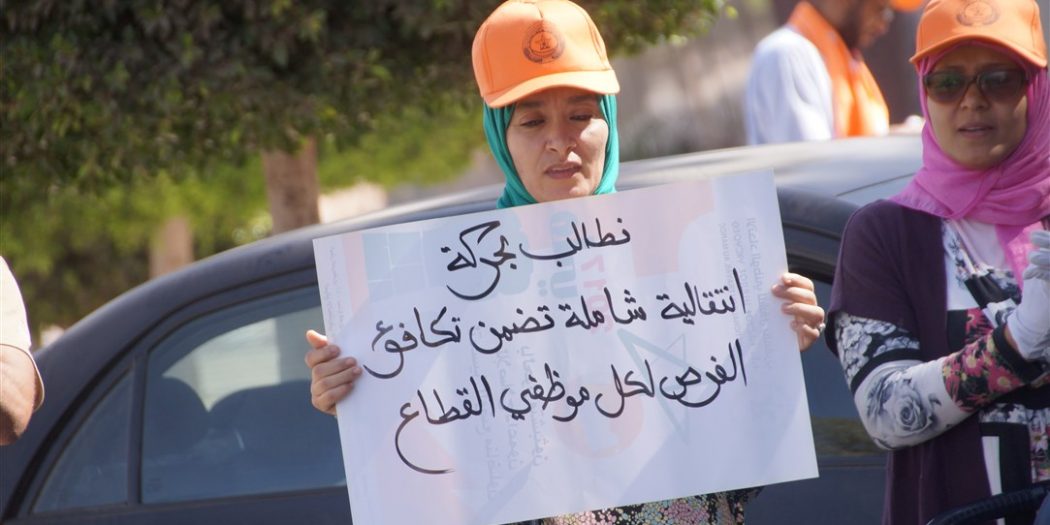 نطالب بحركة
انتقالية شاملة تضمن تكافؤ
الفرص لكل موظفي القطاع